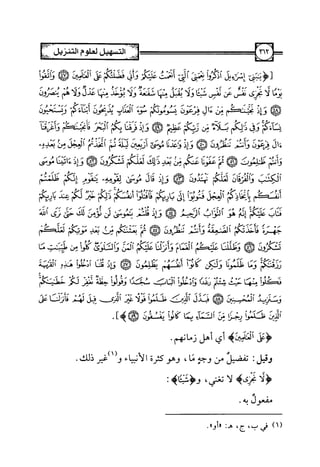 التسهيل لعلوم التنزيل
٣١٢
﴿يَٰبَنِىٓ إِسْرَٰٓءِيلَ ٱذْكُرُوا۟ نِعْمَتِىَ ٱلَّتِىٓ أَنْعَمْتُ عَلَيْكُمْ وَأَنِّى فَضَّلْتُكُمْ عَلَى ٱلْعَٰلَمِينَ ٤٧ وَٱتَّقُوا۟
يَوْمًا لَّا تَجْزِى نَفْسٌ عَن نَّفْسٍ شَيْـًٔا وَلَا يُقْبَلُ مِنْهَا شَفَٰعَةٌ وَلَا يُؤْخَذُ مِنْهَا عَدْلٌ وَلَا هُمْ يُنصَرُونَ
٤٨ وَإِذْ نَجَّيْنَٰكُم مِّنْ ءَالِ فِرْعَوْنَ يَسُومُونَكُمْ سُوٓءَ ٱلْعَذَابِ يُذَبِّحُونَ أَبْنَآءَكُمْ وَيَسْتَحْيُونَ
نِسَآءَكُمْ وَفِى ذَٰلِكُم بَلَآءٌ مِّن رَّبِّكُمْ عَظِيمٌ ٤٩ وَإِذْ فَرَقْنَا بِكُمُ ٱلْبَحْرَ فَأَنجَيْنَٰكُمْ وَأَغْرَقْنَآ
ءَالَ فِرْعَوْنَ وَأَنتُمْ تَنظُرُونَ ٥٠ وَإِذْ وَٰعَدْنَا مُوسَىٰٓ أَرْبَعِينَ لَيْلَةً ثُمَّ ٱتَّخَذْتُمُ ٱلْعِجْلَ مِنۢ بَعْدِهِۦ
وَأَنتُمْ ظَٰلِمُونَ ٥١ ثُمَّ عَفَوْنَا عَنكُم مِّنۢ بَعْدِ ذَٰلِكَ لَعَلَّكُمْ تَشْكُرُونَ ٥٢ وَإِذْ ءَاتَيْنَا مُوسَى
ٱلْكِتَٰبَ وَٱلْفُرْقَانَ لَعَلَّكُمْ تَهْتَدُونَ ٥٣ وَإِذْ قَالَ مُوسَىٰ لِقَوْمِهِۦ يَٰقَوْمِ إِنَّكُمْ ظَلَمْتُمْ
أَنفُسَكُم بِٱتِّخَاذِكُمُ ٱلْعِجْلَ فَتُوبُوٓا۟ إِلَىٰ بَارِئِكُمْ فَٱقْتُلُوٓا۟ أَنفُسَكُمْ ذَٰلِكُمْ خَيْرٌ لَّكُمْ عِندَ بَارِئِكُمْ
فَتَابَ عَلَيْكُمْ إِنَّهُۥ هُوَ ٱلتَّوَّابُ ٱلرَّحِيمُ ٥٤ وَإِذْ قُلْتُمْ يَٰمُوسَىٰ لَن نُّؤْمِنَ لَكَ حَتَّىٰ نَرَى ٱللَّهَ
جَهْرَةً فَأَخَذَتْكُمُ ٱلصَّٰعِقَةُ وَأَنتُمْ تَنظُرُونَ ٥٥ ثُمَّ بَعَثْنَٰكُم مِّنۢ بَعْدِ مَوْتِكُمْ لَعَلَّكُمْ
تَشْكُرُونَ ٥٦ وَظَلَّلْنَا عَلَيْكُمُ ٱلْغَمَامَ وَأَنزَلْنَا عَلَيْكُمُ ٱلْمَنَّ وَٱلسَّلْوَىٰ كُلُوا۟ مِن طَيِّبَٰتِ مَا
رَزَقْنَٰكُمْ وَمَا ظَلَمُونَا وَلَٰكِن كَانُوٓا۟ أَنفُسَهُمْ يَظْلِمُونَ ٥٧ وَإِذْ قُلْنَا ٱدْخُلُوا۟ هَٰذِهِ ٱلْقَرْيَةَ
فَكُلُوا۟ مِنْهَا حَيْثُ شِئْتُمْ رَغَدًا وَٱدْخُلُوا۟ ٱلْبَابَ سُجَّدًا وَقُولُوا۟ حِطَّةٌ نَّغْفِرْ لَكُمْ خَطَٰيَٰكُمْ
وَسَنَزِيدُ ٱلْمُحْسِنِينَ ٥٨ فَبَدَّلَ ٱلَّذِينَ ظَلَمُوا۟ قَوْلًا غَيْرَ ٱلَّذِى قِيلَ لَهُمْ فَأَنزَلْنَا عَلَى
ٱلَّذِينَ ظَلَمُوا۟ رِجْزًا مِّنَ ٱلسَّمَآءِ بِمَا كَانُوا۟ يَفْسُقُونَ ٥٩﴾].
﴿عَلَى ٱلْعَٰلَمِينَ﴾ أي أهل زمانهم.
وقيل: تفضيلٌ من وجهٍ مَّا، وهو كثرة الأنبياء و(١)غير ذلك.
﴿لَّا تَجْزِى﴾ لا تغني، و﴿شَيْـًٔا﴾:
مفعولٌ به.
(١) في ب، ج، هـ: «أو».